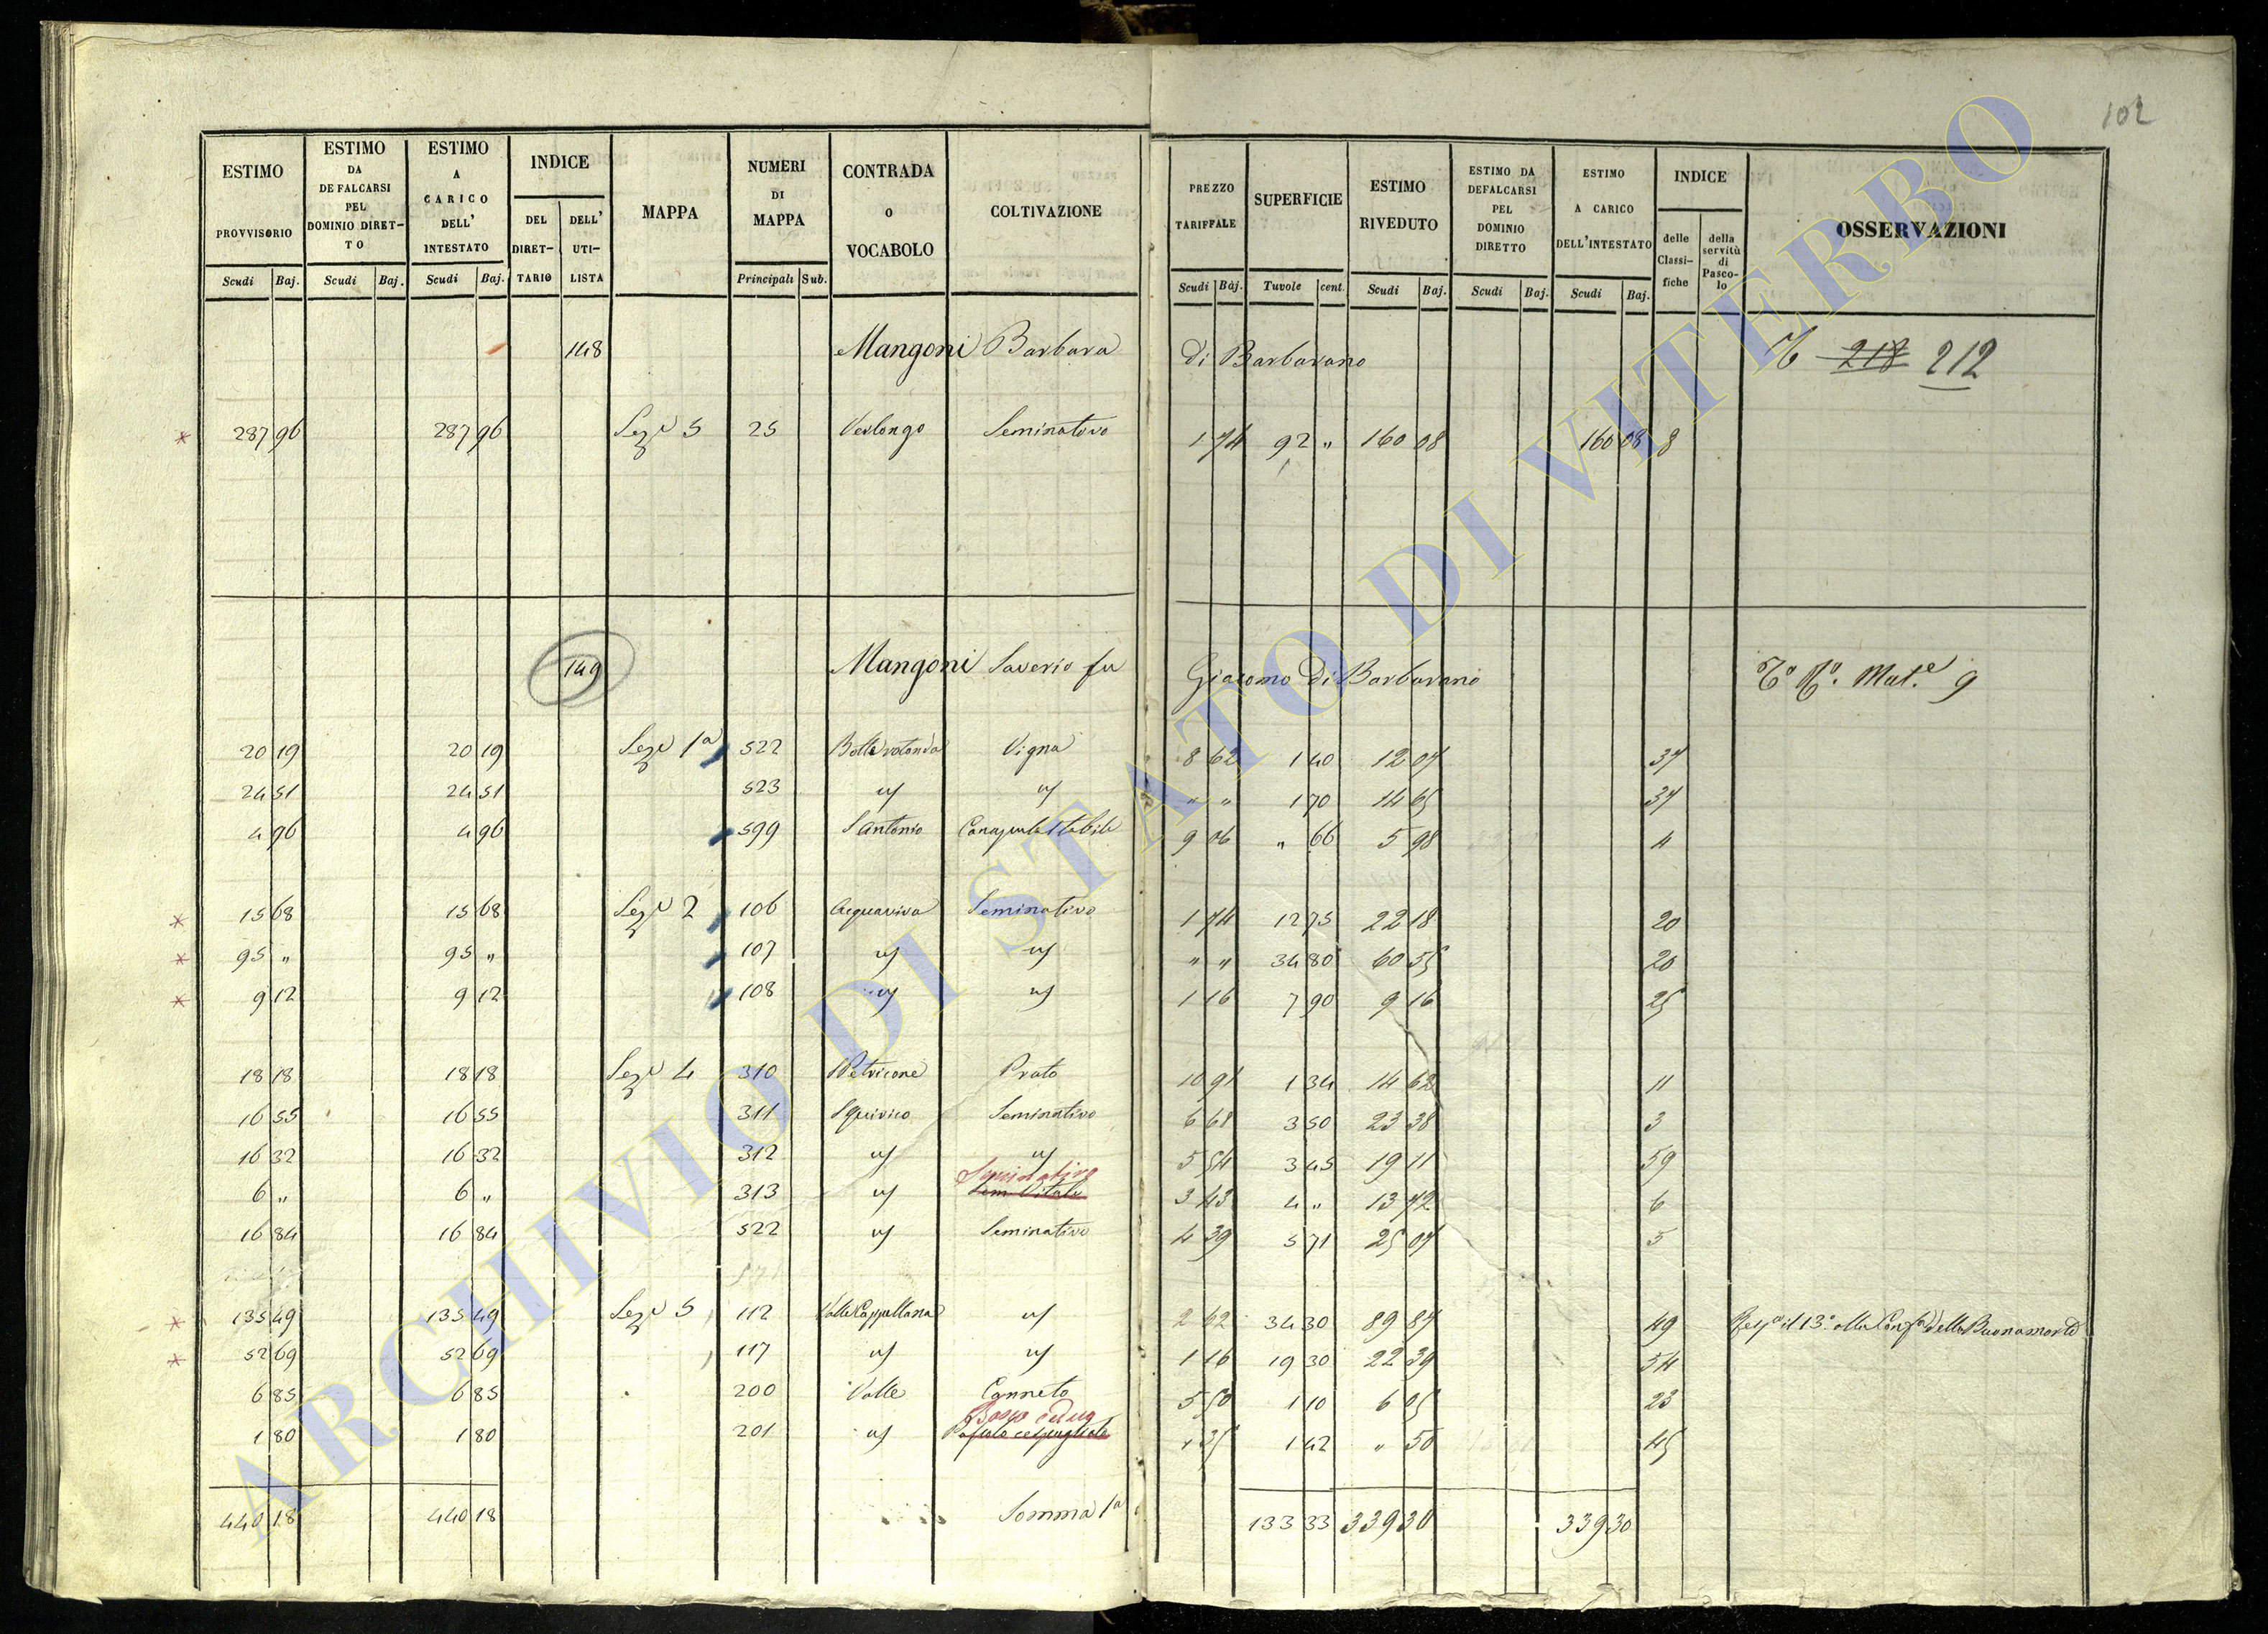 102
ESTIMO PROVVISORIO | ESTIMO DA DEFALCARSI PEL DOMINIO DIRETTO | ESTIMO A CARICO DELL' INTESTATO | INDICE | MAPPA | NUMERI DI MAPPA | CONTRADA O VOCABOLO | COLTIVAZIONE | PREZZO TARIFFALE | SUPERFICIE | ESTIMO RIVEDUTO | ESTIMO DA DEFALCARSI PEL DOMINIO DIRETTO | ESTIMO A CARICO DELL'INTESTATO | INDICE | OSSERVAZIONI
DEL DIRETTARIO | DELL' UTILISTA | delle Classifiche | della servitù di Pascolo
Scudi | Baj. | Scudi | Baj. | Scudi | Baj. | Principali | Sub. | Scudi | Baj. | Tavole | cent. | Scudi | Baj. | Scudi | Baj. | Scudi | Baj.
148 Mangoni Barbara di Barbarano 218 212
* 287 96 287 96 Sez.e 5 25 Verlongo Seminativo 1 74 92 " 160 08 160 08 8
149 Mangoni Saverio fu Giacomo di Barbarano Mat.e 9
20 19 20 19 Sez.e 1a 522 Botte rotonda Vigna 8 62 1 40 12 07 37
24 51 24 51 523 " " 1 70 14 65 37
4 96 4 96 599 S Antonio Canapule stabile 9 06 " 66 5 98 4
* 15 68 15 68 Sez.e 2 106 Acquaviva Seminativo 1 74 12 75 22 18 20
* 95 " 95 " 107 " " 34 80 60 55 20
* 9 12 9 12 108 1 16 7 90 9 16 25
18 18 18 18 Sez.e 4 310 Petricone Prato 10 91 1 34 14 62 11
16 55 16 55 311 Squirico Seminativo 6 68 3 50 23 38 3
16 32 16 32 312 5 54 3 45 19 11 59
Seminativo
6 " 6 " 313 Sem Vitato 3 43 4 " 13 72 6
16 84 16 84 522 Seminativo 4 39 5 71 25 07 5
* 135 49 135 49 Sez.e 5 112 Valle Cappellana 2 62 34 30 89 87 49 alla Conf.a della Buonamorte
* 52 69 52 69 117 1 16 19 30 22 39 54
6 85 6 85 200 Valle Canneto 5 50 1 10 6 05 23
Bosco ceduo
1 80 1 80 201 Pascolo cespugliato " 35 1 42 " 50 45
440 18 440 18 Somma 1a 133 33 339 30 339 30
ARCHIVIO DI STATO DI VITERBO